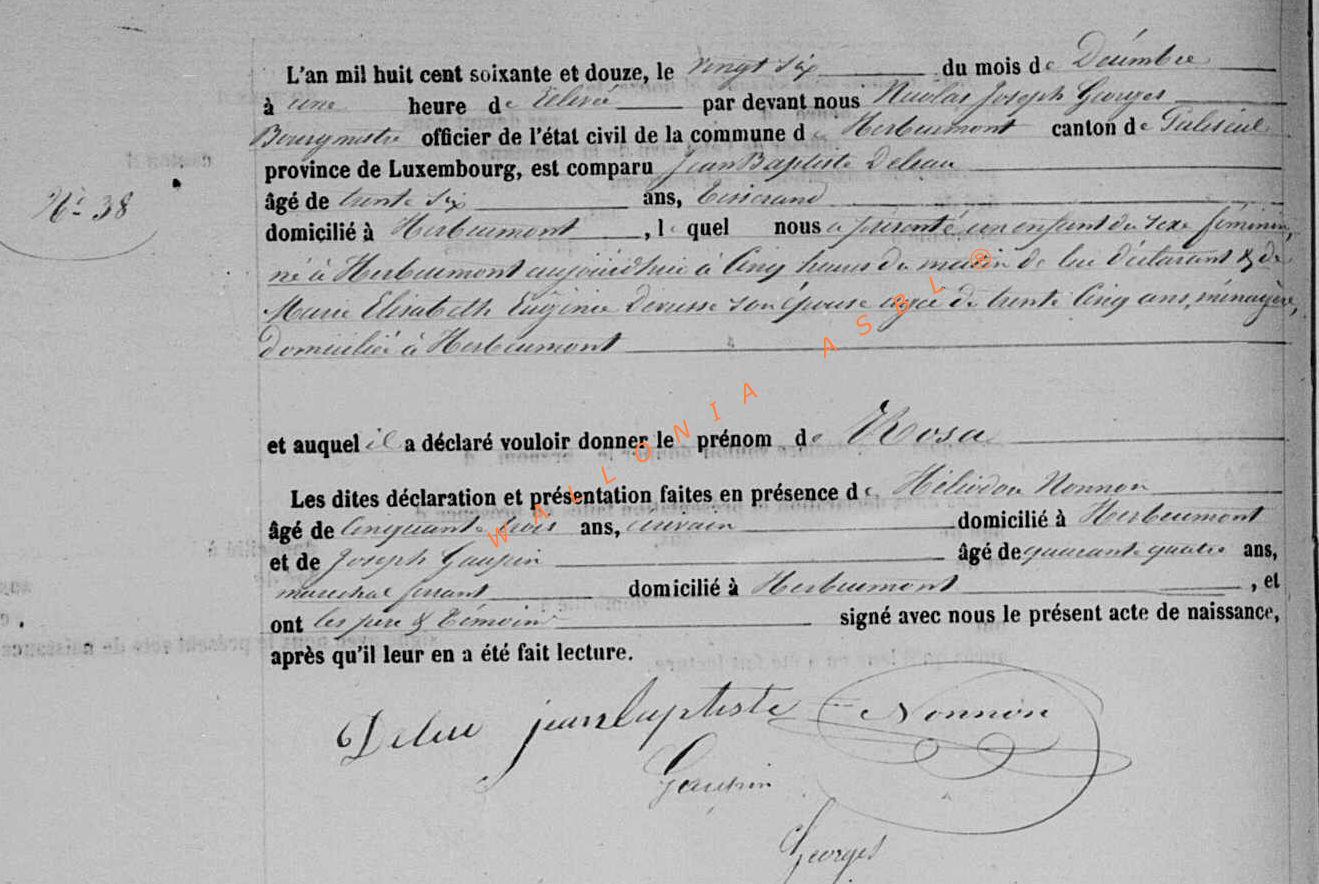 L'an mil huit cent soixante et douze, le vingt six du mois de Décembre
à une heure de relevée par devant nous Nicolas Joseph Georges
Bourgmestre officier de l'état civil de la commune de Herbeumont canton de Paliseul
province de Luxembourg, est comparu Jean Baptiste Deleau
N° 38
âgé de trente six ans, Tisserand
domicilié à Herbeumont, lequel nous a présenté un enfant du sexe féminin,
né à Herbeumont aujourd'hui à cinq heures du matin de lui déclarant & de
Marie Elisabeth Eugénie son épouse agée de trente cinq ans, ménagère,
domiciliée à Herbeumont
et auquel il a déclaré vouloir donner le prénom de Rosa
Les dites déclaration et présentation faites en présence de Héliodore Nonnon
âgé de cinquante trois ans, domicilié à Herbeumont
et de Joseph Gaupin âgé de quarante quatre ans,
maréchal ferrant domicilié à Herbeumont, et
ont les père & témoins signé avec nous le présent acte de naissance,
après qu'il leur en a été fait lecture.
jean baptiste Nonnon
Gaupin
Georges
WALLONIA ASBL ®